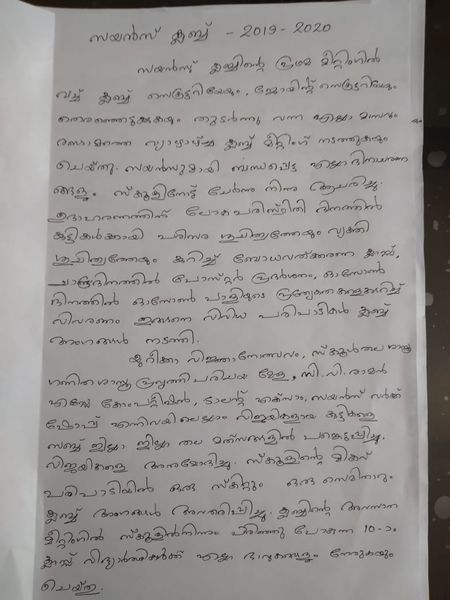 സയൻസ് ക്ലബ്ബ് - 2019-2020
സയൻസ് ക്ലബ്ബിന്റെ പ്രഥമ മീറ്റിംഗിൽ
വച്ച് ക്ലബ്ബ് സെക്രട്ടറിയേയും, ജോയിന്റ് സെക്രട്ടറിയേയും
തെരഞ്ഞെടുക്കുകയും തുടർന്നു വന്ന എല്ലാ മാസവും
രണ്ടാമത്തെ വ്യാഴാഴ്ച ക്ലബ്ബ് മീറ്റിംഗ് നടത്തുകയും
ചെയ്തു. സയൻസുമായി ബന്ധപ്പെട്ട എല്ലാ ദിനാചരണ
ങ്ങളും സ്കൂളിനോട് ചേർന്നു നിന്നു ആചരിച്ചു.
ഉദാഹരണത്തിന് ലോകപരിസ്ഥിതി ദിനത്തിൽ
കുട്ടികൾക്കായി പരിസര ശുചിത്വത്തേയും വ്യക്തി
ശുചിത്വത്തേയും കുറിച്ച് ബോധവൽക്കരണ ക്ലാസ്സ്,
ചാന്ദ്രദിനത്തിൽ പോസ്റ്റർ പ്രദർശനം, ഓസോൺ
ദിനത്തിൽ ഓസോൺ പാളിയുടെ പ്രത്യേകതകളെക്കുറിച്ച്
വിവരണം ഇങ്ങനെ വിവിധ പരിപാടികൾ ക്ലബ്ബ്
അംഗങ്ങൾ നടത്തി.
യുറീക്കാ വിജ്ഞാനോത്സവം, സ്കൂൾതല ശാസ്ത്ര
ഗണിത ശാസ്ത്ര പ്രവൃത്തി പരിചയ മേള, സി.വി. രാമൻ
എസ്സേ കോംപറ്റീഷൻ, ടാലന്റ് എക്സാം, സയൻസ് വർക്ക്
ഷോപ്പ് എന്നിവയിലെല്ലാം വിജയികളായ കുട്ടികളെ
സബ്ബ് ജില്ലാ ജില്ലാ തല മത്സരങ്ങളിൽ പങ്കെടുപ്പിച്ചു.
വിജയികളെ അനുമോദിച്ചു. സ്കൂളിന്റെ മികവ്
പരിപാടിയിൽ ഒരു സ്കിറ്റും ഒരു സെമിനാറും
ക്ലബ്ബ് അംഗങ്ങൾ അവതരിപ്പിച്ചു. ക്ലബ്ബിന്റെ അവസാന
മീറ്റിംഗിൽ സ്കൂളിൽനിന്നും പിരിഞ്ഞു പോകുന്ന 10-ാം
ക്ലാസ്സ് വിദ്യാർത്ഥികൾക്ക് എല്ലാ ഭാവുകങ്ങളും നേരുകയും
ചെയ്തു.